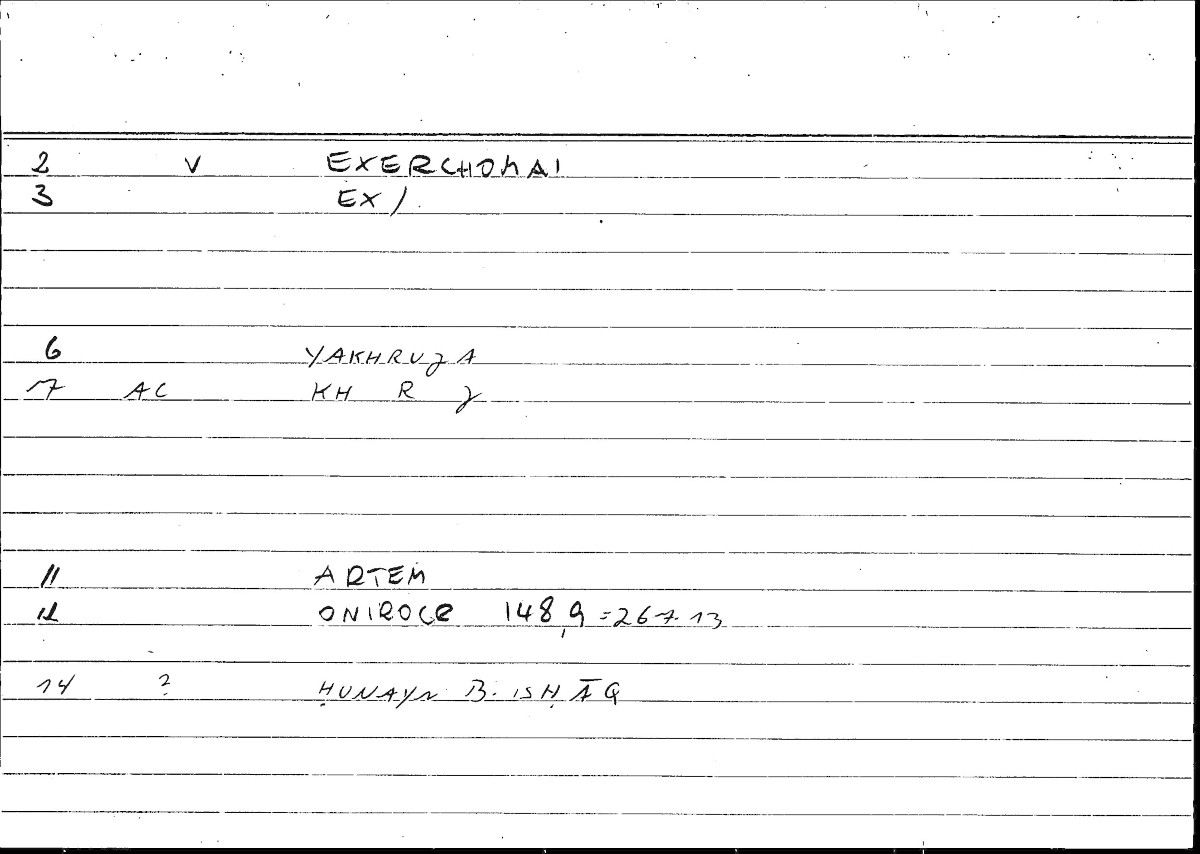 2 V EXERCHOMAI
3 EX /
6 YAKHRUJA
7 AC KH R J
11 ARTEM
12 ONIROCR 148,9 = 267.13
14 ? ḤUNAYN B. ISḤĀQ